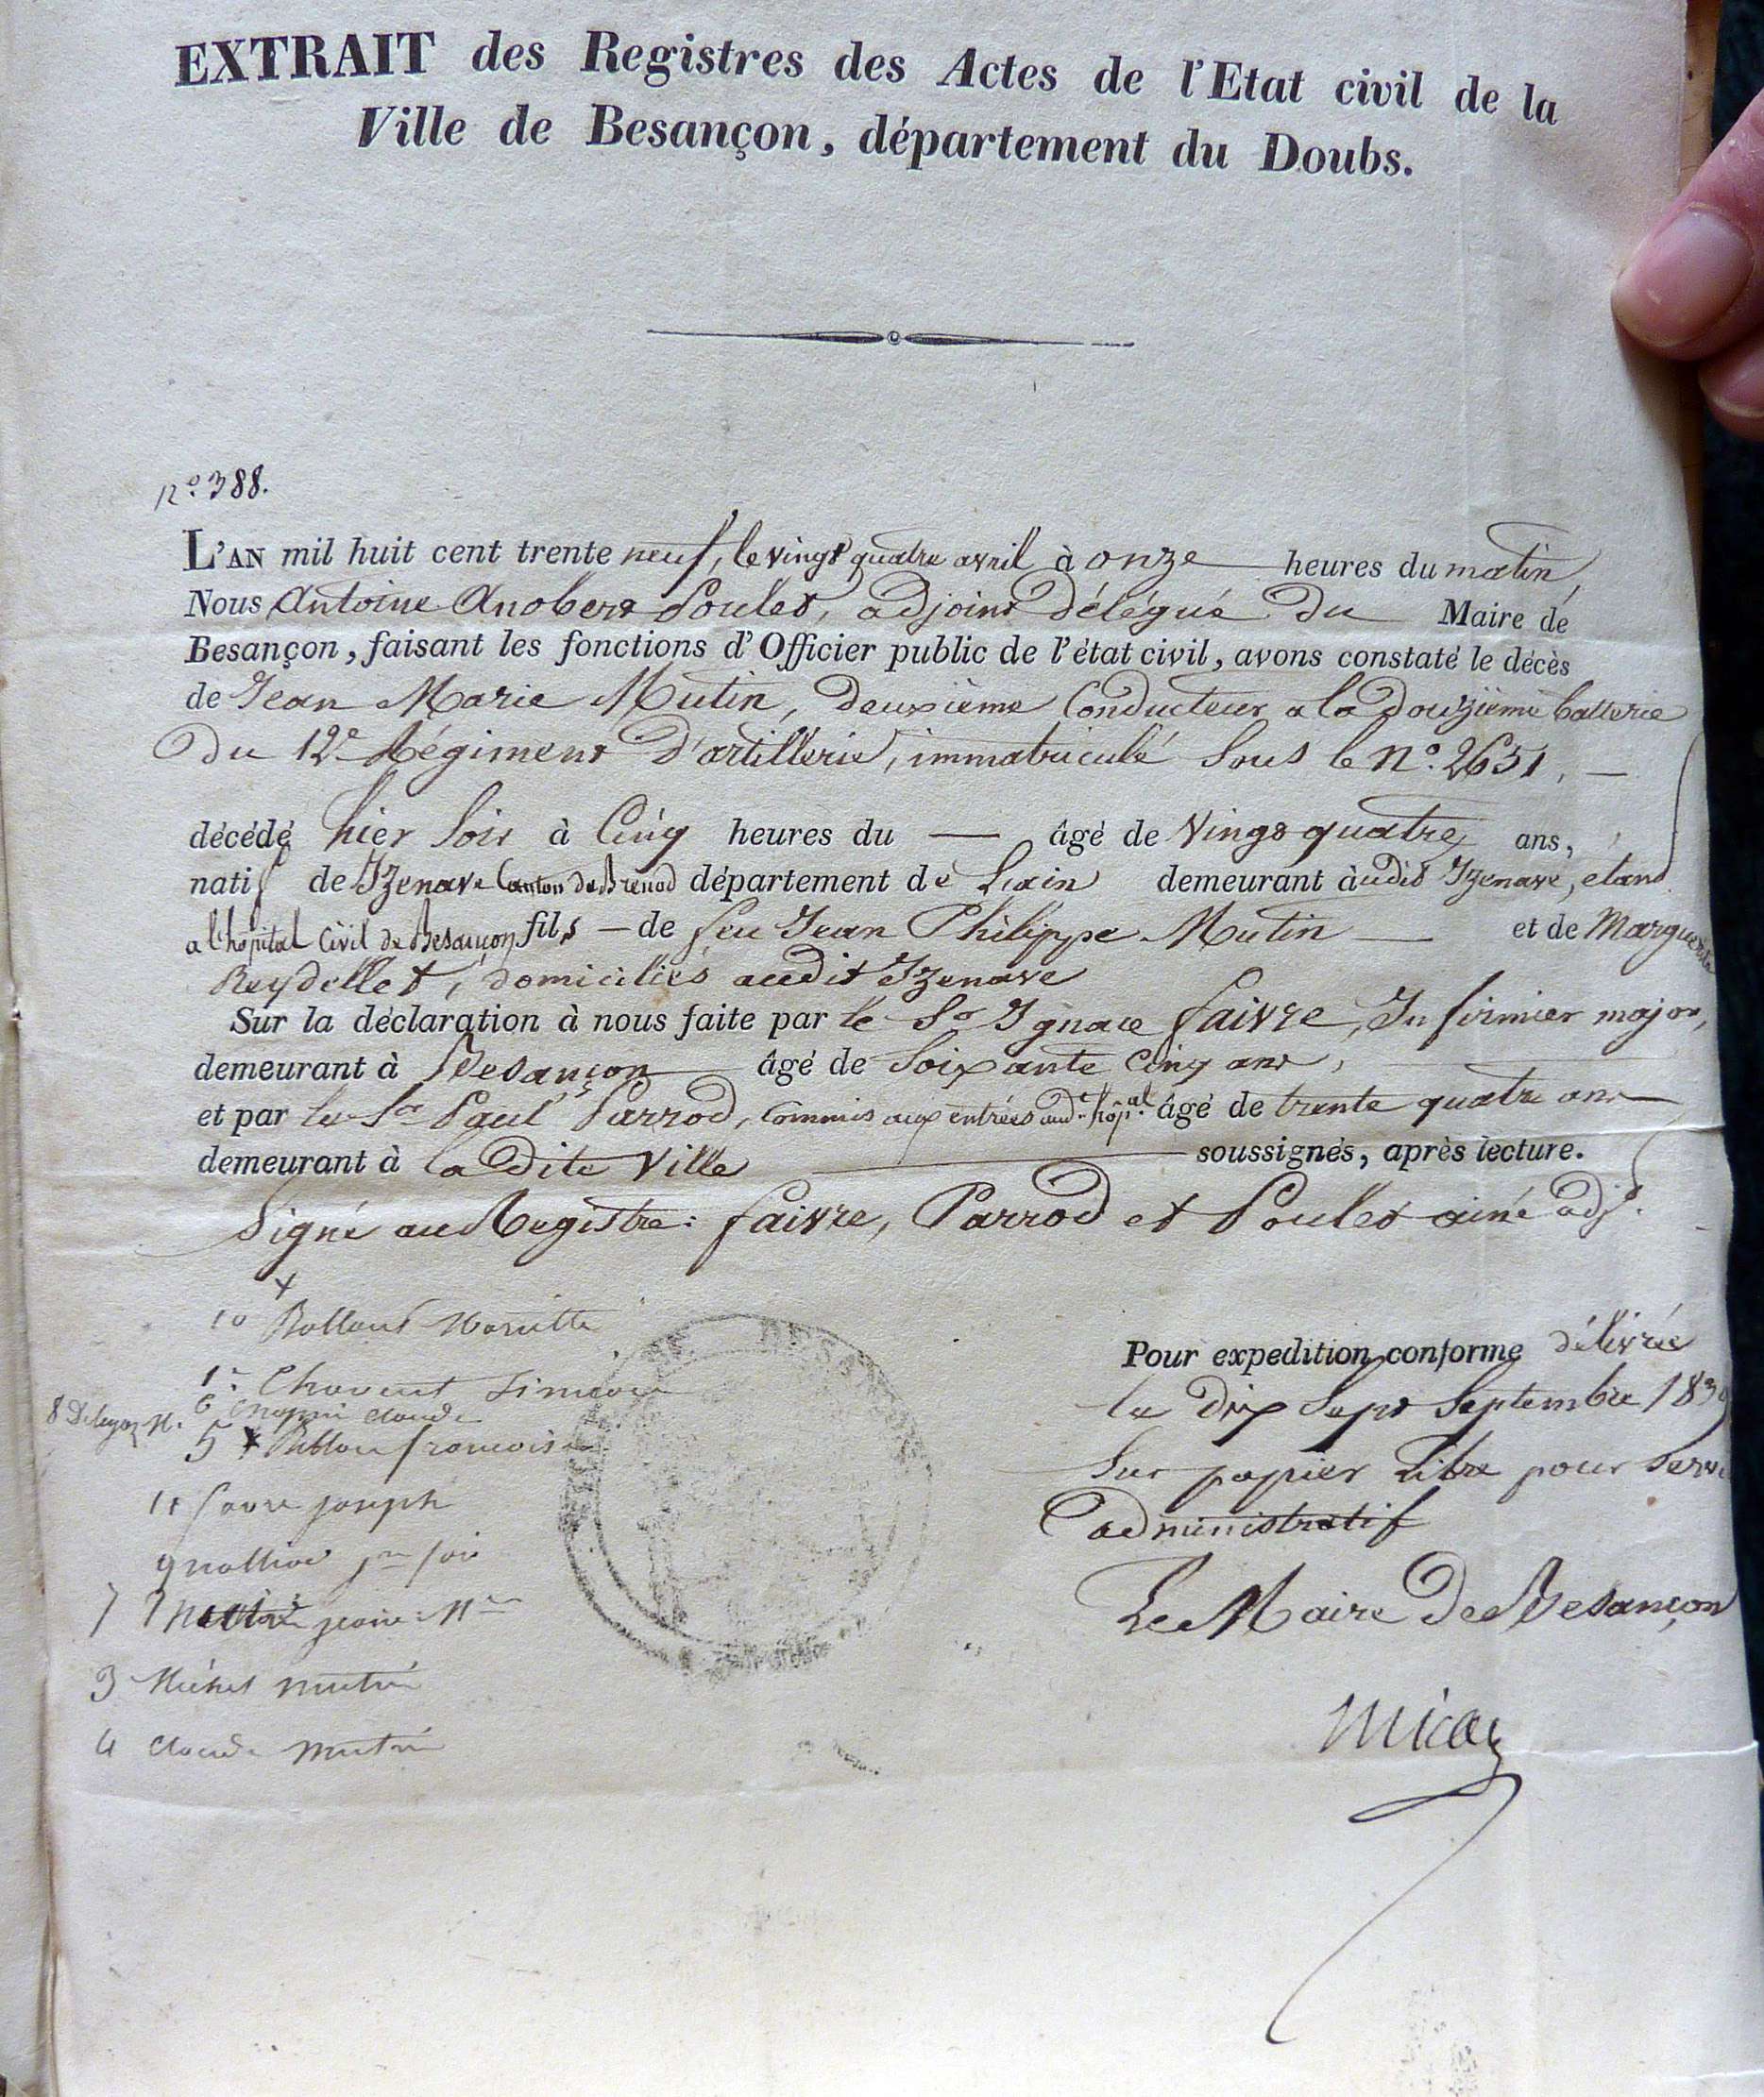 EXTRAIT des Registres des Actes de l'Etat civil de la
Ville de Besançon, département du Doubs.
N.º 388.
L'AN mil huit cent trente neuf, le vingt quatre avril à onze heures du matin,
Nous Antoine Anobert Poulet, adjoint délégué du Maire de
Besançon, faisant les fonctions d'Officier public de l'état civil, avons constaté le décès
de Jean Marie Mutin, deuxième Conducteur a la douzième batterie
Du 12e Régiment D'artillerie, immatriculé Sous le N.º 2651,
décédé hier Soir à Cinq heures du — âgé de Vingt quatre ans,
natif de Izenave Canton de Brenod département de L'ain demeurant audit Izenave, etant
a l'hôpital Civil de Besançon fils — de feu Jean Philippe Mutin — et de Marguerite
Reydellet, domiciliés audit Izenave
Sur la déclaration à nous faite par le Sr Ignace Faivre, Infirmier major,
demeurant à Besançon âgé de Soixante Cinq ans,
et par le Sr Paul Parrod, Commis aux entrées aud. hôp.al âgé de trente quatre ans
demeurant à la Dite Ville soussignés, après lecture.
Signé au Registre: Faivre, Parrod et Poulet ainé adj.t
10
1º Chavent
8 6 Claude
5 francoise
11 joseph
9
7
3 Michel mutin
4 Claude mutin
Pour expedition conforme délivrée
le Dix Sept Septembre 1839
Sur papier Libre pour Servi
administratif
Le Maire De Besançon
Micaud